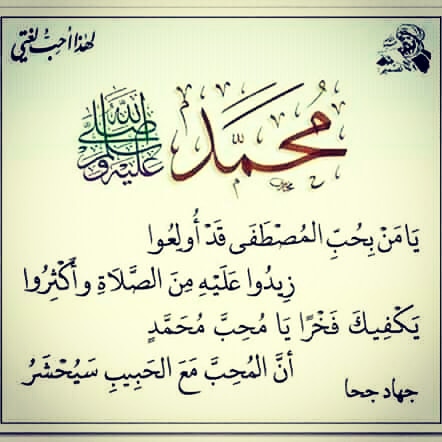 لهذا أحب لغتي
محمد
صلى الله عليه وسلم
يَا مَنْ بِحُبِّ المُصْطَفَى قَدْ أُولِعُوا
زِيدُوا عَلَيْهِ مِنَ الصَّلَاةِ وأَكْثِرُوا
يَكْفِيكَ فَخْرًا يَا مُحِبَّ مُحَمَّدٍ
أنَّ المُحِبَّ مَعَ الحَبِيبِ سَيُحْشَرُ
جهاد جحا